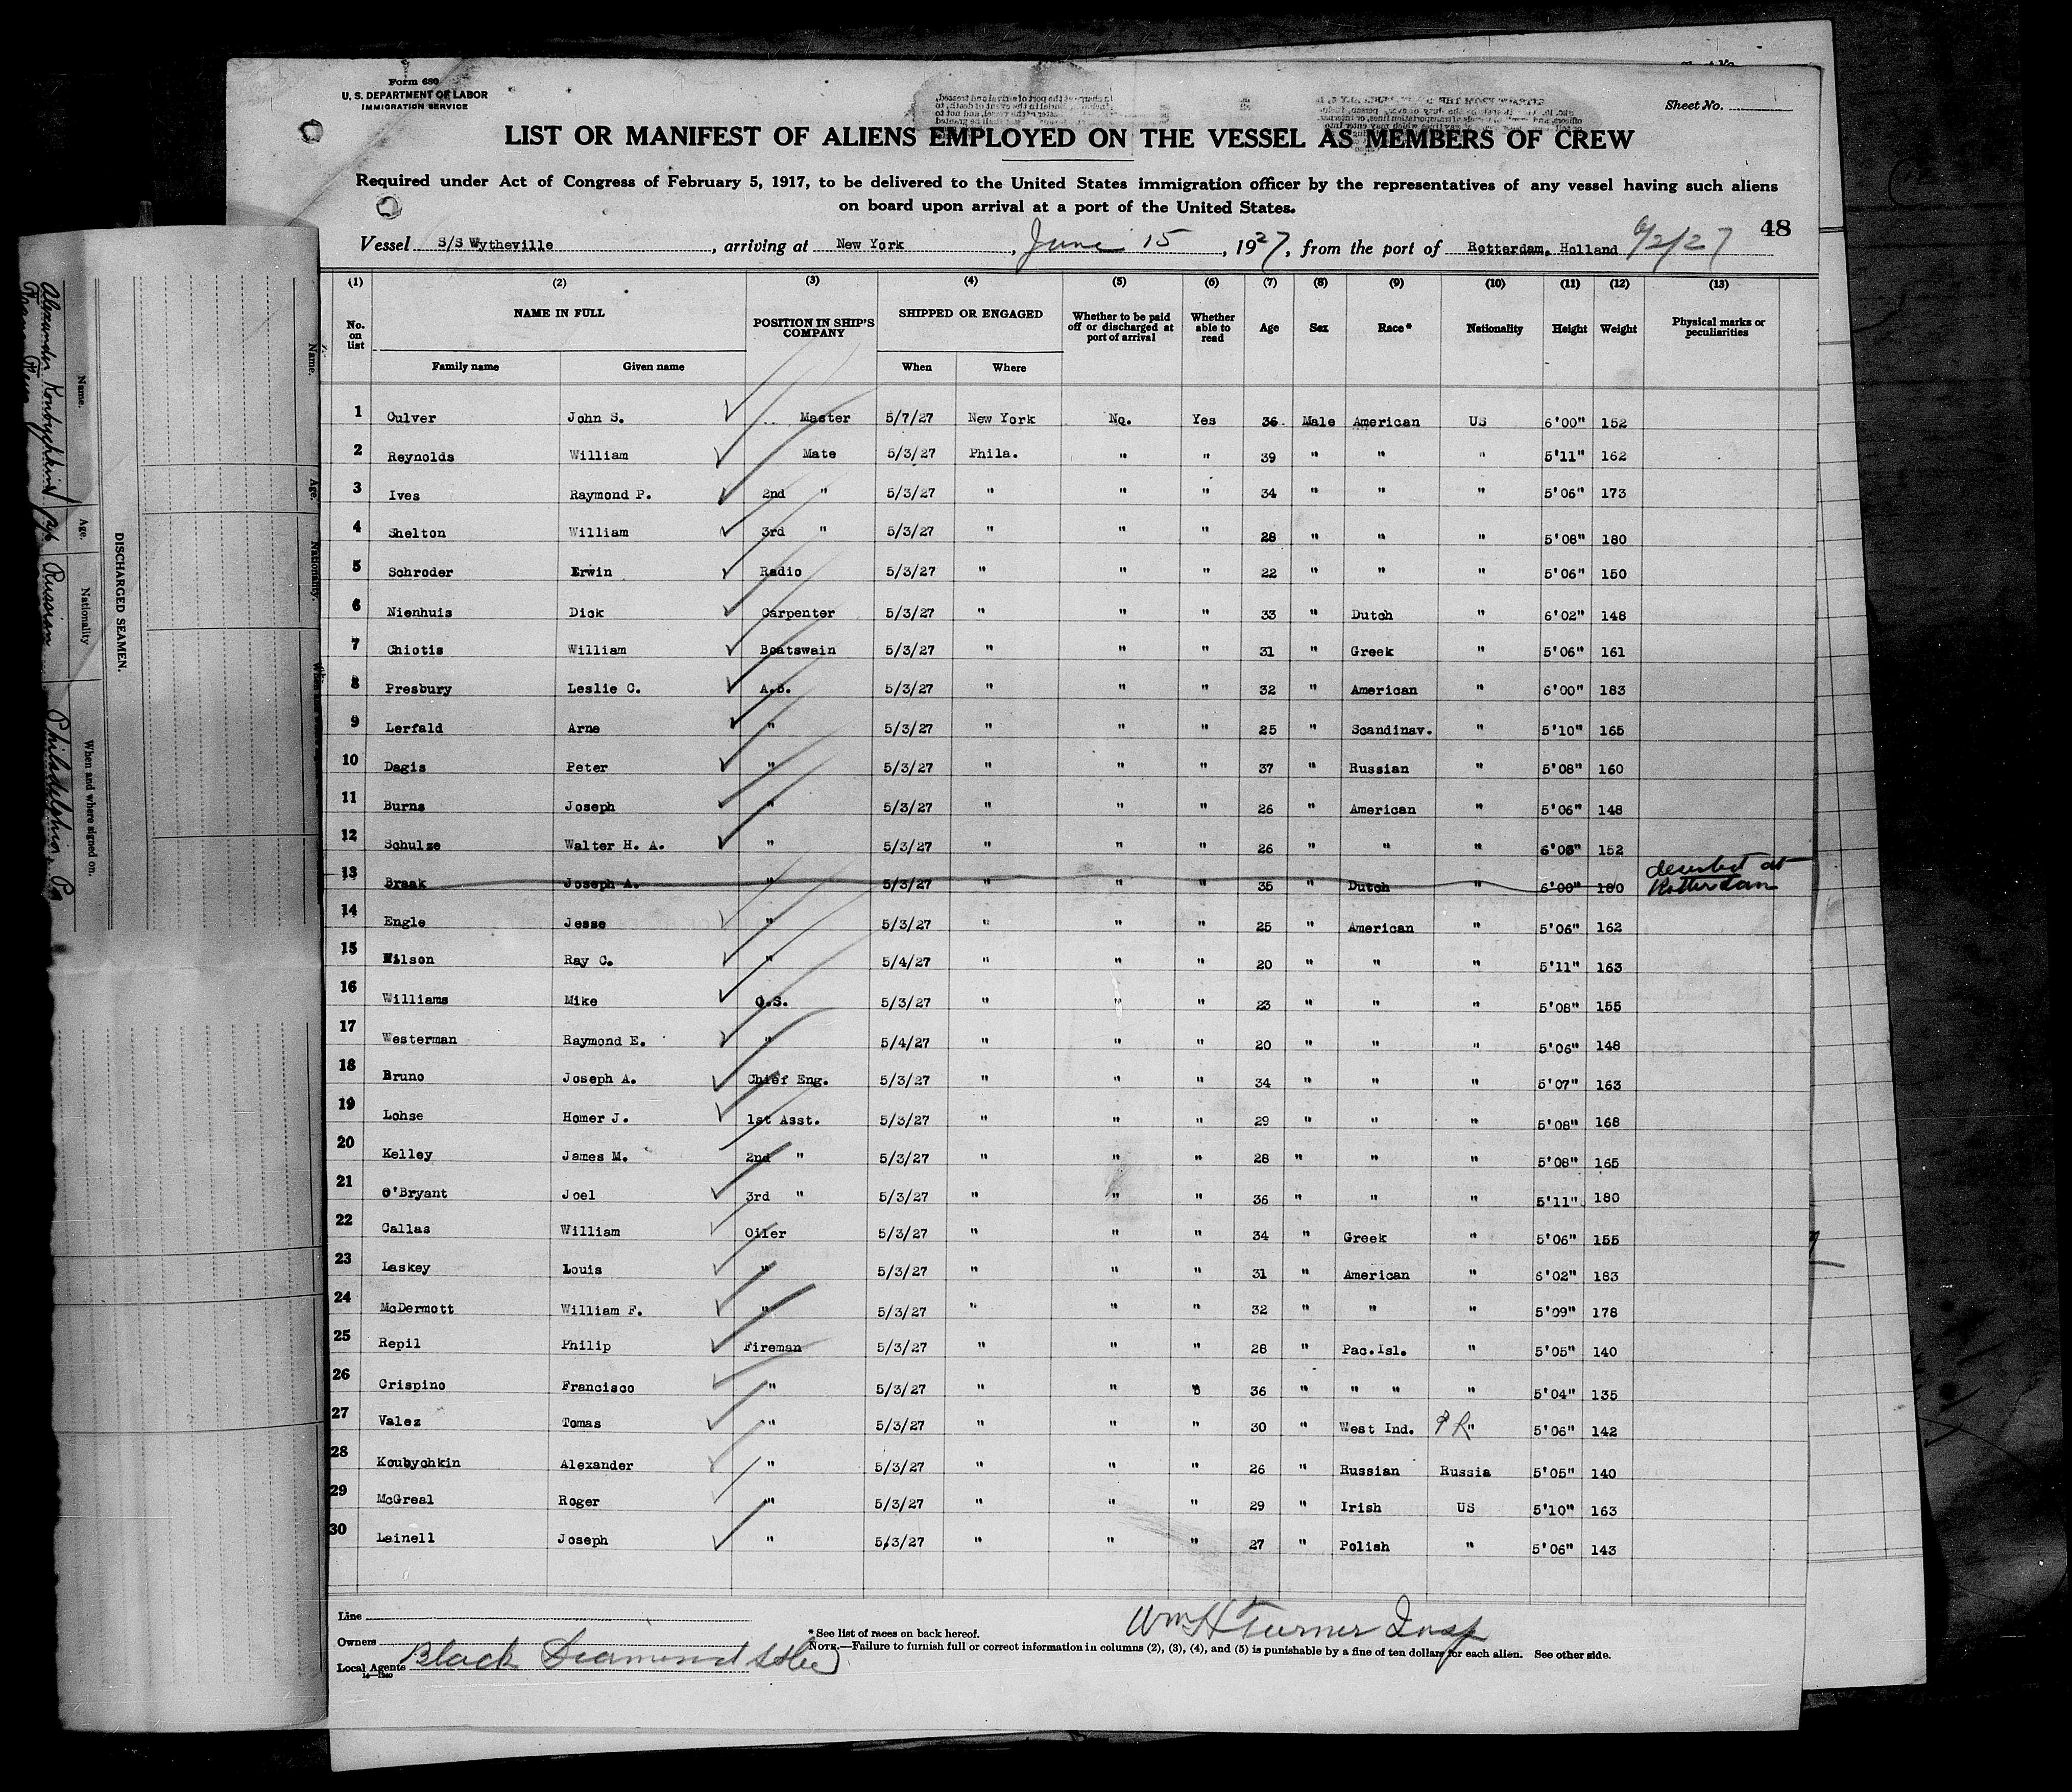 Form 680
U. S. DEPARTMENT OF LABOR
IMMIGRATION SERVICE
Sheet No.
LIST OR MANIFEST OF ALIENS EMPLOYED ON THE VESSEL AS MEMBERS OF CREW
Required under Act of Congress of February 5, 1917, to be delivered to the United States immigration officer by the representatives of any vessel having such aliens
on board upon arrival at a port of the United States.
48
Vessel S/S Wytheville, arriving at New York, June 15, 1927, from the port of Rotterdam, Holland 6/2/27
(1) (2) (3) (4) (5) (6) (7) (8) (9) (10) (11) (12) (13)
No. on list NAME IN FULL Family name Given name POSITION IN SHIP'S COMPANY SHIPPED OR ENGAGED When Where Whether to be paid off or discharged at port of arrival Whether able to read Age Sex Race* Nationality Height Weight Physical marks or peculiarities
1 Culver John S. Master 5/7/27 New York No. Yes 36 Male American US 6'00" 152
2 Reynolds William Mate 5/3/27 Phila. " " 39 " " " 5'11" 162
3 Ives Raymond P. 2nd " 5/3/27 " " " 34 " " " 5'06" 173
4 Shelton William 3rd " 5/3/27 " " " 28 " " " 5'08" 180
5 Schroder Erwin Radio 5/3/27 " " " 22 " " " 5'06" 150
6 Nienhuis Dick Carpenter 5/3/27 " " " 33 " Dutch " 6'02" 148
7 Chiotis William Boatswain 5/3/27 " " " 31 " Greek " 5'06" 161
8 Presbury Leslie C. A.B. 5/3/27 " " " 32 " American " 6'00" 183
9 Lerfald Arne " 5/3/27 " " " 25 " Scandinav. " 5'10" 165
10 Dagis Peter " 5/3/27 " " " 37 " Russian " 5'08" 160
11 Burns Joseph " 5/3/27 " " " 26 " American " 5'06" 148
12 Schulze Walter H. A. " 5/3/27 " " " 26 " " " 6'06" 152
13 Braak Joseph A. " 5/3/27 " " " 35 " Dutch " 6'00" 180 deserted at Rotterdam
14 Engle Jesse " 5/3/27 " " " 25 " American " 5'06" 162
15 Wilson Ray C. " 5/4/27 " " " 20 " " " 5'11" 163
16 Williams Mike O.S. 5/3/27 " " " 23 " " " 5'08" 155
17 Westerman Raymond E. " 5/4/27 " " " 20 " " " 5'06" 148
18 Bruno Joseph A. Chief Eng. 5/3/27 " " " 34 " " " 5'07" 163
19 Lohse Homer J. 1st Asst. 5/3/27 " " " 29 " " " 5'08" 168
20 Kelley James M. 2nd " 5/3/27 " " " 28 " " " 5'08" 165
21 O'Bryant Joel 3rd " 5/3/27 " " " 36 " " " 5'11" 180
22 Callas William Oiler 5/3/27 " " " 34 " Greek " 5'06" 155
23 Laskey Louis " 5/3/27 " " " 31 " American " 6'02" 183
24 McDermott William F. " 5/3/27 " " " 32 " " " 5'09" 178
25 Repil Philip Fireman 5/3/27 " " " 28 " Pac.Isl. " 5'05" 140
26 Crispino Francisco " 5/3/27 " " " 36 " " " " 5'04" 135
27 Valez Tomas " 5/3/27 " " " 30 " West Ind. PR " 5'06" 142
28 Koubychkin Alexander " 5/3/27 " " " 26 " Russian Russia 5'05" 140
29 McGreal Roger " 5/3/27 " " " 29 " Irish US 5'10" 163
30 Lainell Joseph " 5/3/27 " " " 27 " Polish " 5'06" 143
Line
Owners
Local Agents Black Diamond
14—1240
* See list of races on back hereof.
NOTE.—Failure to furnish full or correct information in columns (2), (3), (4), and (5) is punishable by a fine of ten dollars for each alien. See other side.
Wm H Turner Insp
DISCHARGED SEAMEN.
Name. Age. Nationality When and where signed on.
Alexander Koubychkin 26 Russian Philadelphia, Pa
Name. Age. Nationality.